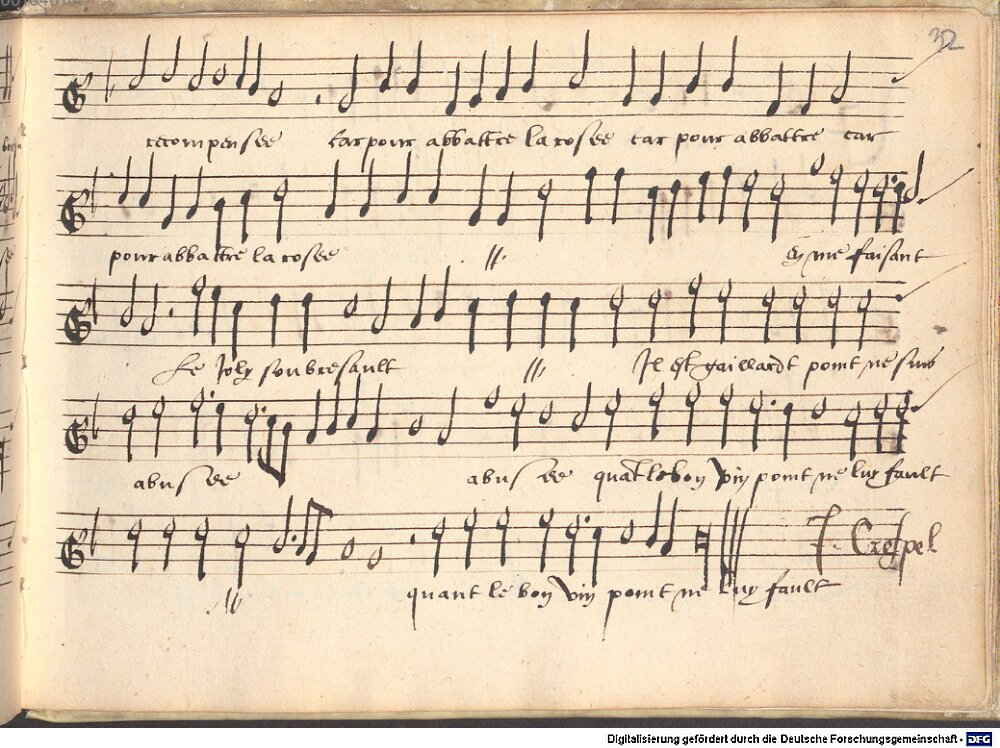 32
recompensee Car pour abbattre la rosee car pour abbattre car
pour abbattre la rosee // En me faisant
Le Joly soubresault // Il est gaillardt point ne suis
abusee abusee quāt le bon vin point ne luy fault
// quant le bon vin point ne luy fault
J. Crespel
Digitalisierung gefördert durch die Deutsche Forschungsgemeinschaft - DFG